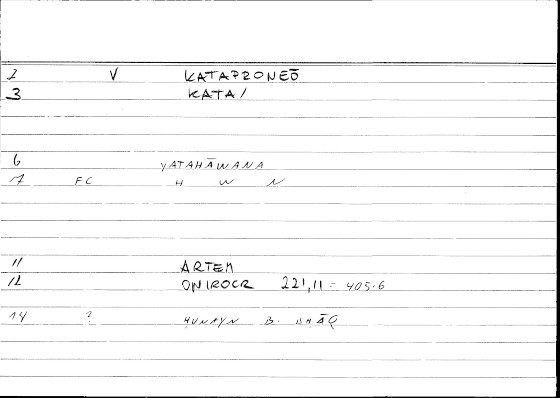 2 V KATAPRONEŌ
3 KATA/
6 YATAHĀWANA
7 FC H W N
11 ARTEM
12 ONIROCR 221,11 = 405.6
14 ? HUNAYN B. ISHĀQ